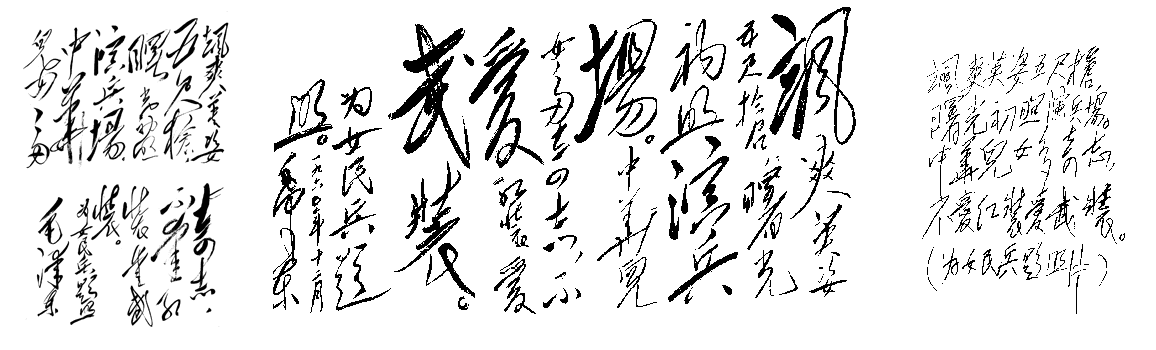 颯爽英姿
五尺槍
曙光初照
演兵場
中華
兒女多
奇志。
不爱红
装爱武
装。
为女民兵题照
毛泽东
颯爽英姿
五尺槍曙光
初照演兵
場。中華兒
女多奇志,不
爱红装爱
武装。
为女民兵题
照。一九六〇年 月
毛泽东
颯爽英姿五尺槍,
曙光初照演兵場。
中華兒女多奇志,
不爱红装爱武装。
(为女民兵题照片)